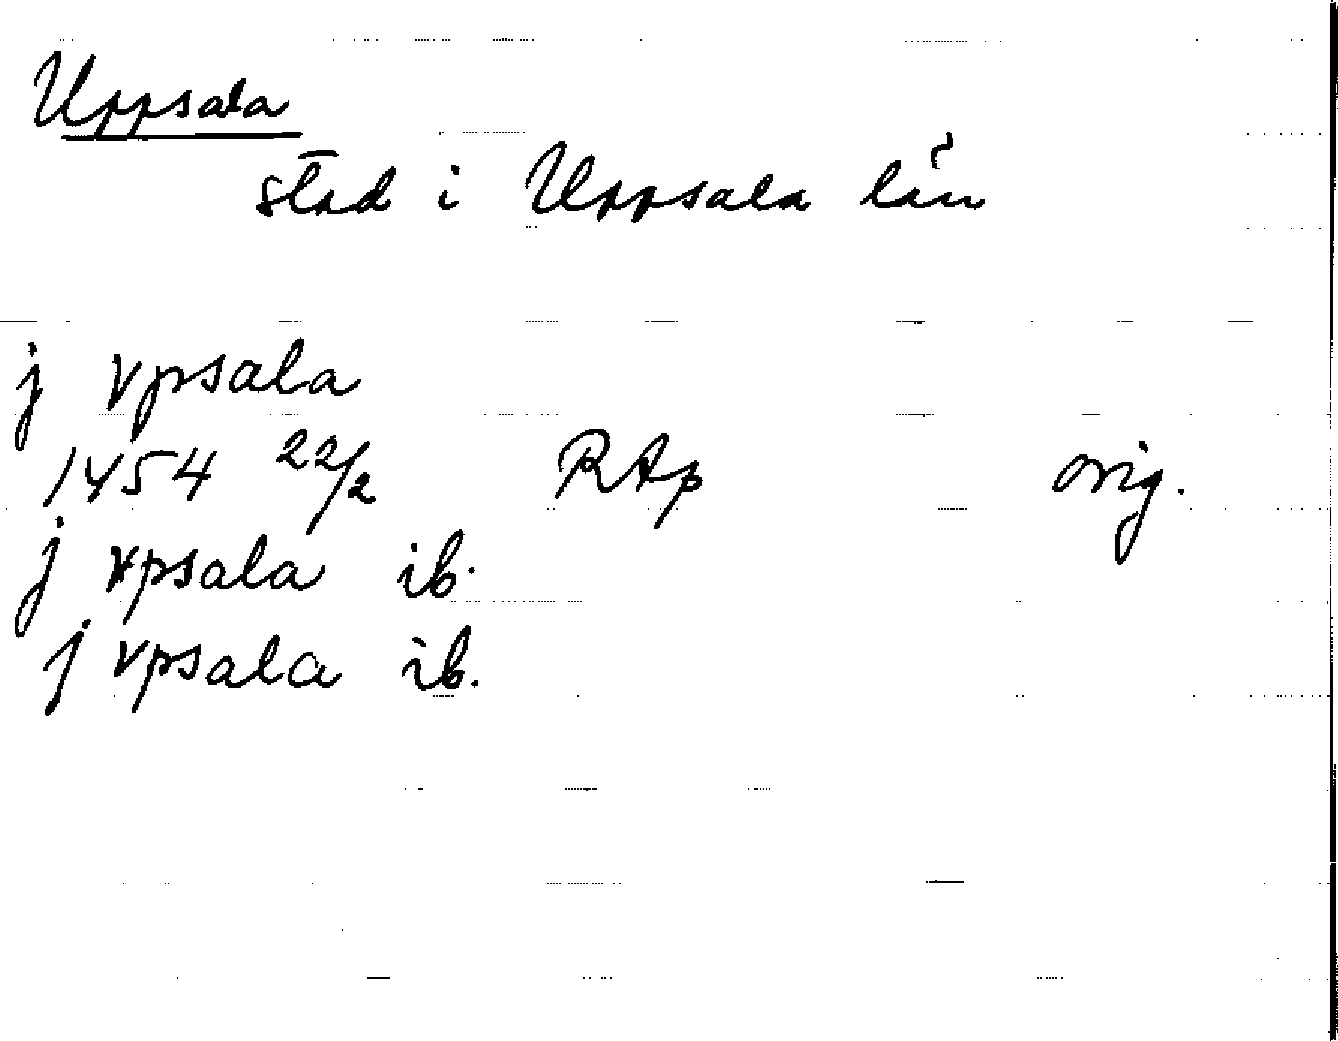 Uppsala
stad i Uppsala län
j vpsala
1454 22/2 RAp orig.
j vpsala ib.
j vpsala ib.